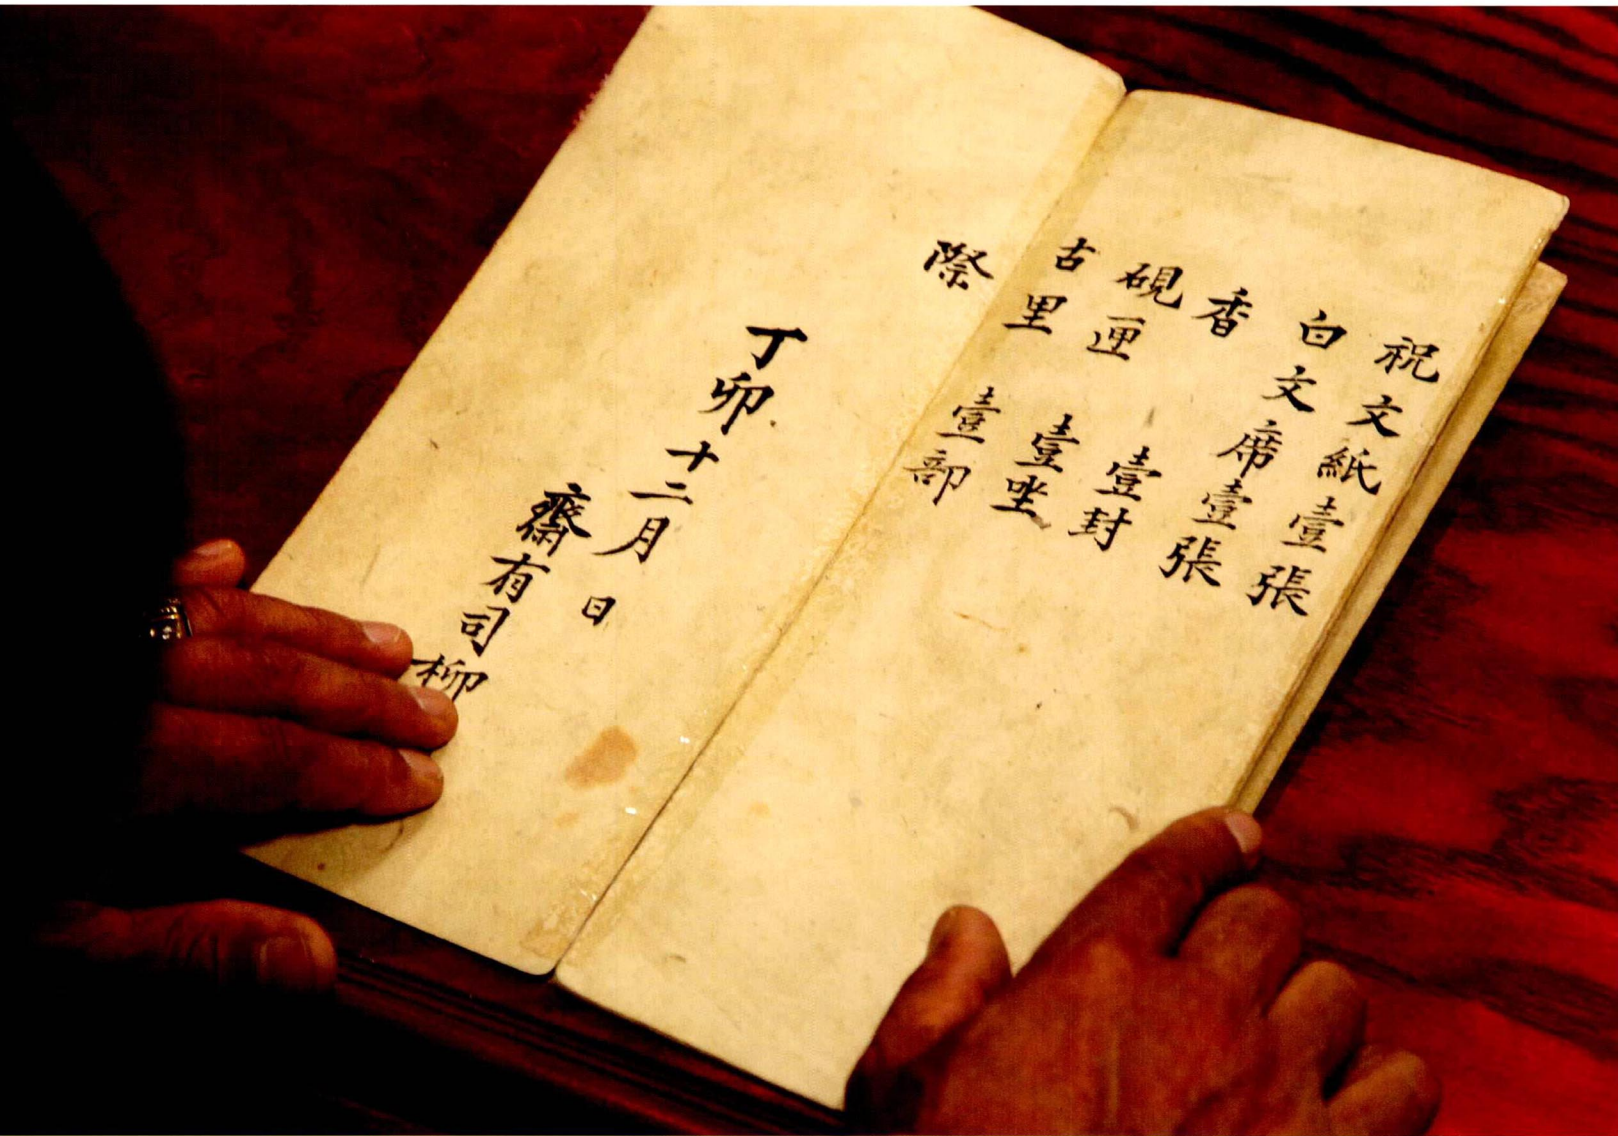 祝文紙壹張
白文席壹張
香 壹封
硯匣 壹坐
古里 壹部
際
丁卯十二月 日
齋有司柳